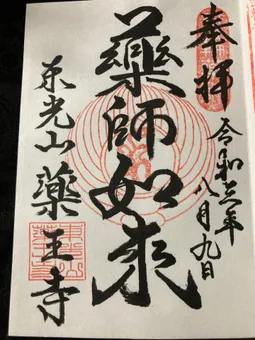 奉拝
令和三年八月九日
藥師如来
东光山 藥王寺